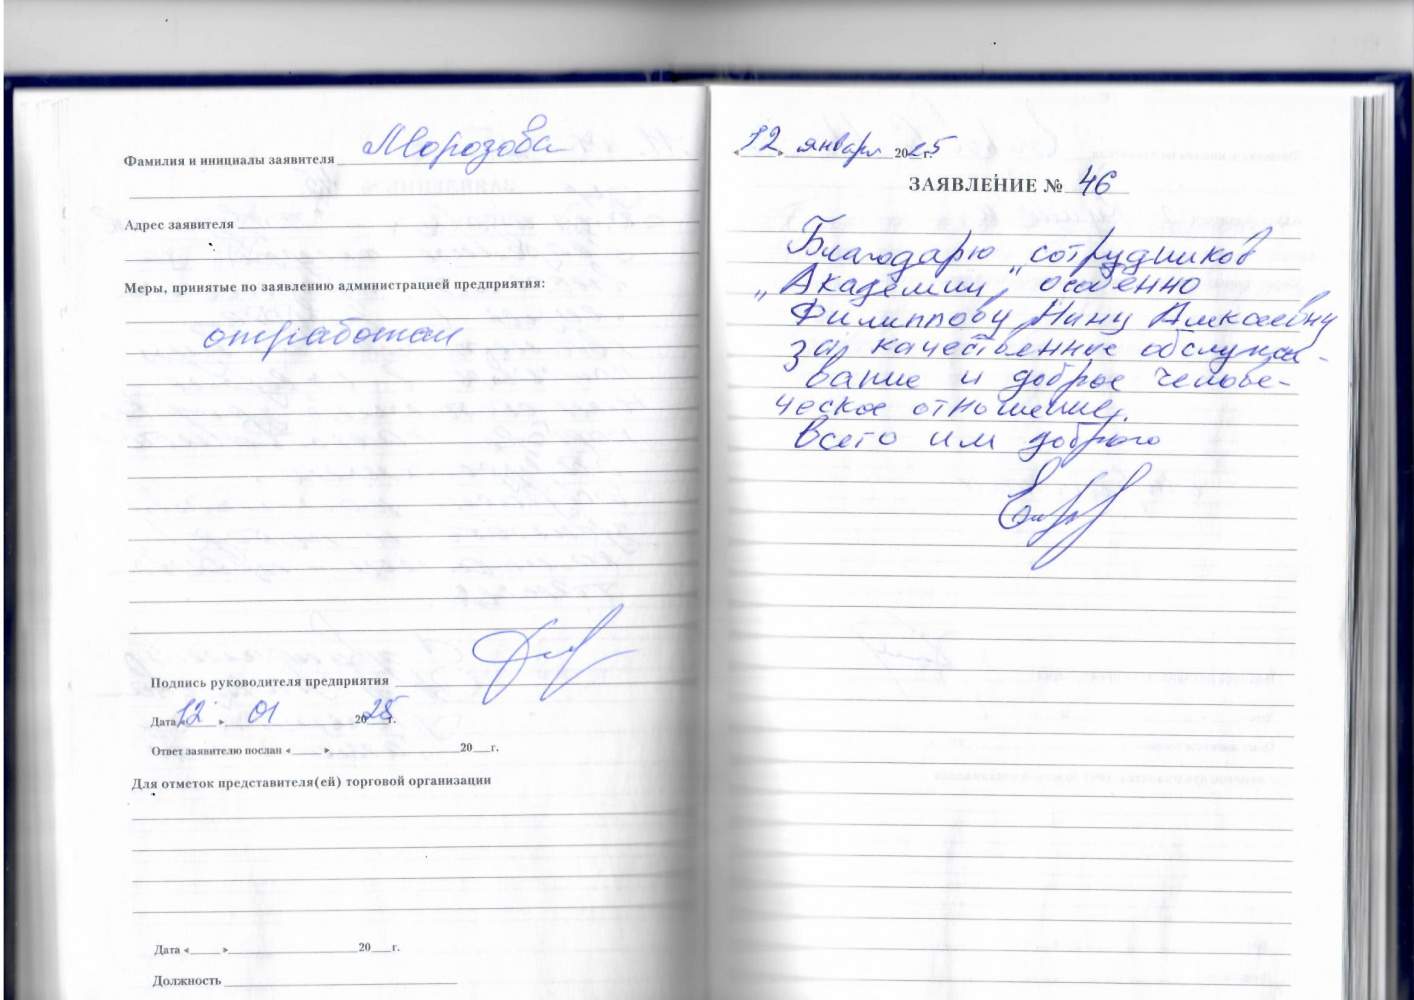 Фамилия и инициалы заявителя Морозова
Адрес заявителя
Меры, принятые по заявлению администрацией предприятия:
отработан
Подпись руководителя предприятия
Дата « 12 » 01 2025 г.
Ответ заявителю послан « » 20 г.
Для отметок представителя(ей) торговой организации
Дата « » 20 г.
Должность
« 12 » января 2025 г.
ЗАЯВЛЕНИЕ № 46
Благодарю сотрудников
„Академии", особенно
Филиппову Нину Алексеевну
за качественное обслужи-
вание и доброе челове-
ческое отношение.
Всего им доброго